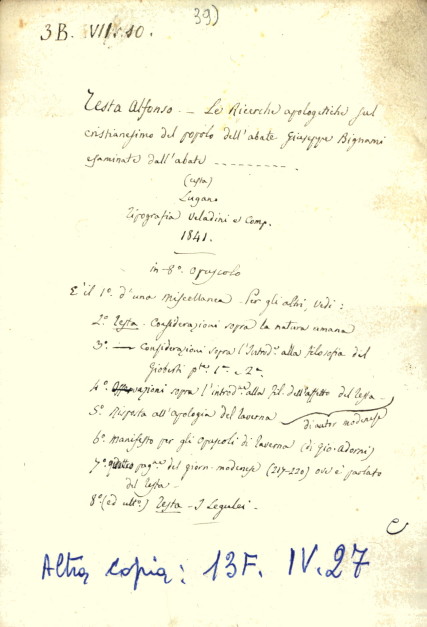 39)
3B. VII. 10.
Testa Alfonso — Le Ricerche apologetiche sul
cristianesimo del popolo dell'abate Giuseppe Bignami
esaminate dall'abate ----------.
(Testa)
Lugano
Tipografia Veladini e Comp.
1841.
in-8º. Opuscolo
E' il 1º. d'una Miscellanea. Per gli altri, vedi:
2º. Testa - Considerazioni sopra la natura umana
3º. — Considerazioni sopra l'Introdˢ. alla filosofia del
Gioberti pᵗᵉ. 1ª. e 2ª.
4º. Osservazioni sopra l'introdˢ. alla fil. dell'affetto del Testa -
5º. Risposta all'apologia del Taverna
di autor modenese
6º. Manifesto per gli Opuscoli di Taverna (di Gio. Adorni)
7º. quattro pagⁿᵉ. del giorn. modenese (217-220) ove è parlato
del Testa -
8º. (ed ultº.) Testa - I Legulei -
Altra copia: 13F. IV. 27